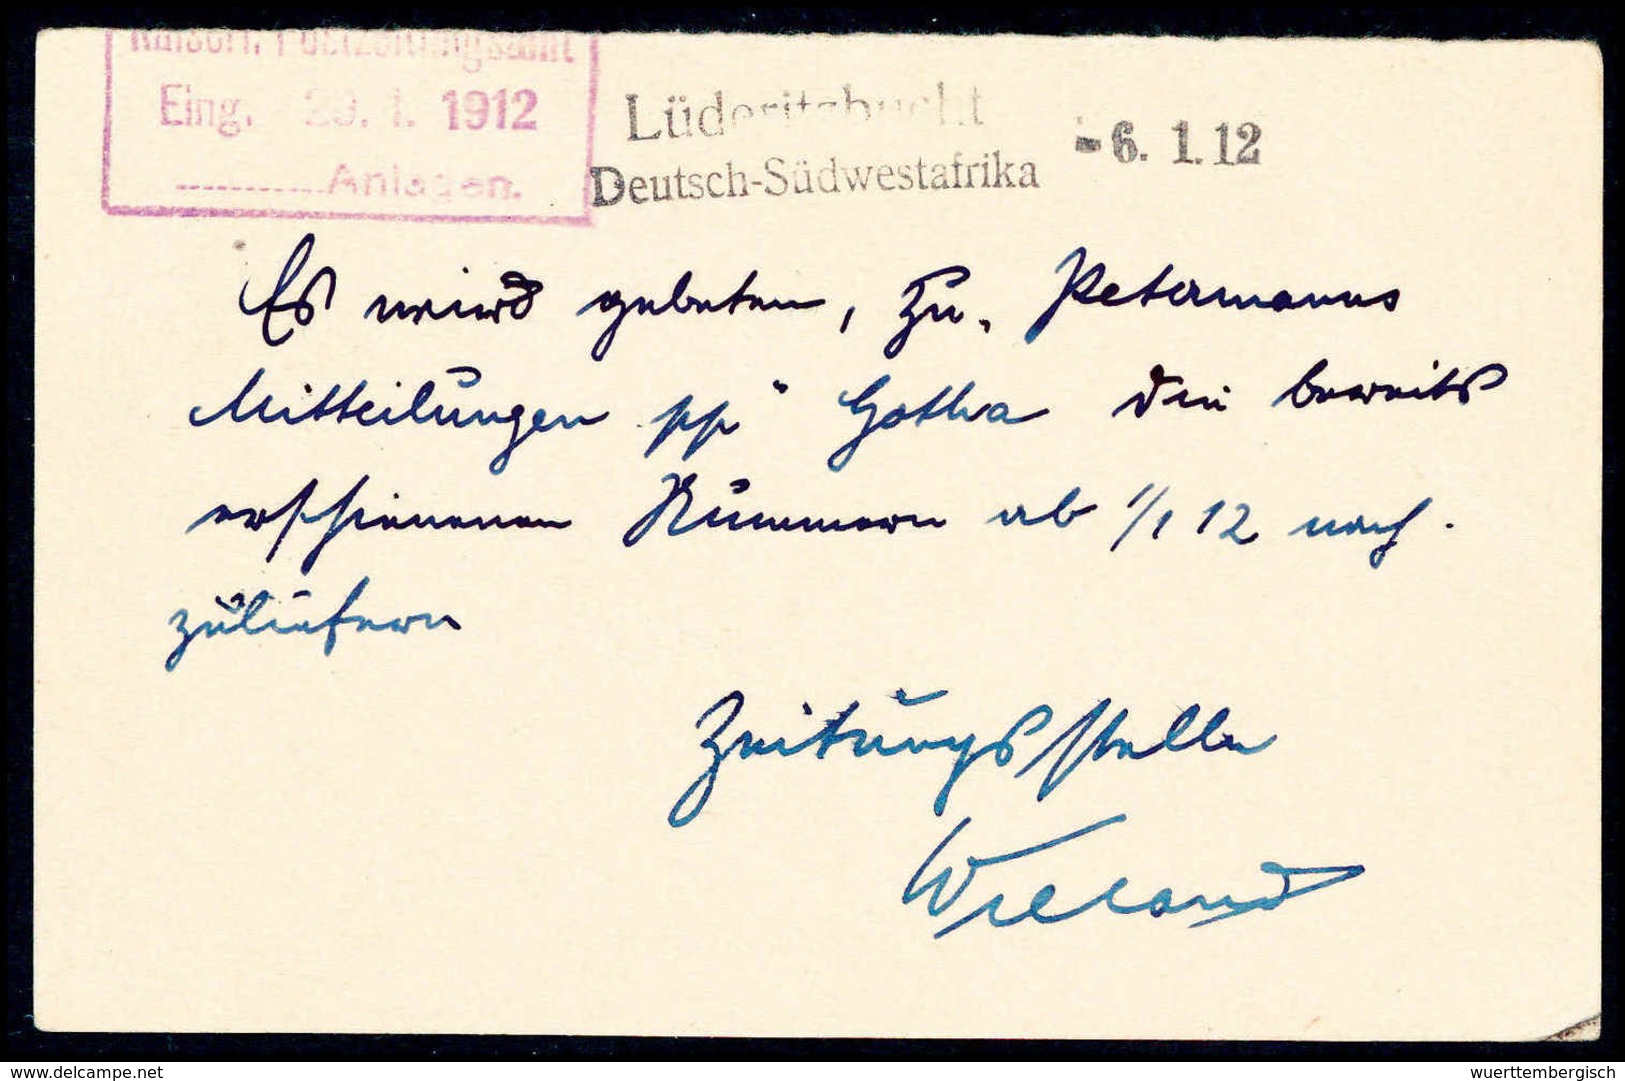 Kaiserl. Postzeitungsamt
Eing. 29. 1. 1912
Anlagen.
Lüderitzbucht
Deutsch-Südwestafrika
- 6. 1. 12
Es wird gebeten, zu „Petermanns
Mitteilungen pp“ Gotha die bereits
erschienenen Nummern ab 1/1 12 nach-
zuliefern
Zeitungsstelle
delcampe.net
wuerttembergisch